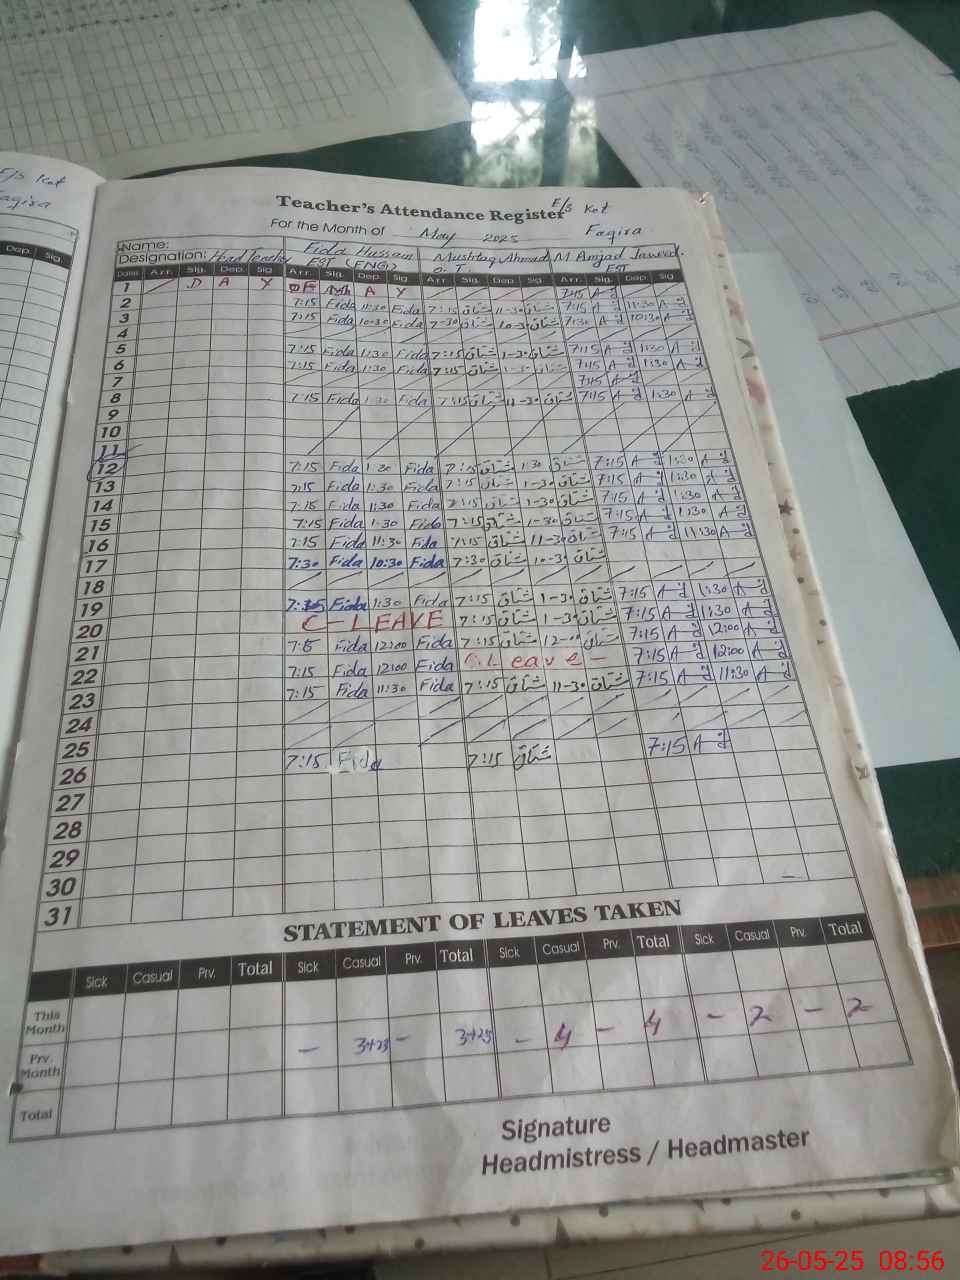 E/S Kot
Faqira
Dep. Sig.
Teacher's Attendance Register E/S Kot
For the Month of May 2025 Faqira
Name: Fida Hussain Mushtaq Ahmad M Amjad Javed
Designation: Head Teacher EST (ENG) O.T. EST
Date Arr. Sig. Dep. Sig Arr. Sig. Dep. Sig. Arr. Sig. Dep. Sig. Arr. Sig. Dep. Sig
1 D A Y A Y 7:15 A
2 7:15 Fida 11:30 Fida 7:15 مشتاق 11-30 مشتاق 7:15 A 11:30 A
3 7:15 Fida 10:30 Fida 7-30 مشتاق 10-30 مشتاق 7:30 A 10:30 A
4
5 7:15 Fida 1:30 Fida 7:15 مشتاق 1-30 مشتاق 7:15 A 1:30 A
6 7:15 Fida 1:30 Fida 7:15 مشتاق 1-30 مشتاق 7:15 A 1:30 A
7 7:15 A
8 7:15 Fida 1:30 Fida 7:15 مشتاق 11-30 مشتاق 7:15 A 1:30 A
9
10
11
12 7:15 Fida 1:30 Fida 7:15 مشتاق 1:30 مشتاق 7:15 A 1:30 A
13 7:15 Fida 1:30 Fida 7:15 مشتاق 1-30 مشتاق 7:15 A 1:30 A
14 7:15 Fida 1:30 Fida 7:15 مشتاق 1-30 مشتاق 7:15 A 1:30 A
15 7:15 Fida 1-30 Fida 7:15 مشتاق 1-30 مشتاق 7:15 A 1:30 A
16 7:15 Fida 11:30 Fida 7:15 مشتاق 11-30 مشتاق 7:15 A 11:30 A
17 7:30 Fida 10:30 Fida 7:30 مشتاق 10-30 مشتاق
18
19 7:15 Fida 1:30 Fida 7:15 مشتاق 1-30 مشتاق 7:15 A 1:30 A
20 C-LEAVE 7:15 مشتاق 1-30 مشتاق 7:15 A 1:30 A
21 7:15 Fida 12:00 Fida 7:15 مشتاق 12-00 مشتاق 7:15 A 12:00 A
22 7:15 Fida 12:00 Fida C.Leave - 7:15 A 12:00 A
23 7:15 Fida 11:30 Fida 7:15 مشتاق 11-30 مشتاق 7:15 A 11:30 A
24
25
26 7:15 Fida 7:15 مشتاق 7:15 A
27
28
29
30
31
STATEMENT OF LEAVES TAKEN
Sick Casual Prv. Total Sick Casual Prv. Total Sick Casual Prv. Total Sick Casual Prv. Total
This Month
Prv. Month - 3+23 - 3+23 - 4 - 4 - 2 - 2
Total
Signature
Headmistress / Headmaster
26-05-25 08:56